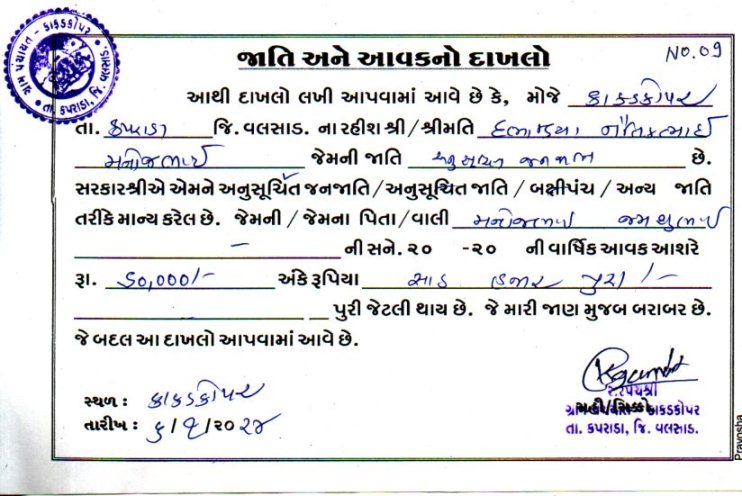 ગ્રામ પંચાયત - કાકડકોપર
તા. કપરાડા, જિ. વલસાડ.
જાતિ અને આવકનો દાખલો
NO. 09
આથી દાખલો લખી આપવામાં આવે છે કે, મોજે કાકડકોપર
તા. કપરાડા જિ. વલસાડ. ના રહીશ શ્રી / શ્રીમતિ
મનોજભાઈ જેમની જાતિ છે.
સરકારશ્રીએ એમને અનુસૂચિત જનજાતિ / અનુસૂચિત જાતિ / બક્ષીપંચ / અન્ય જાતિ
તરીકે માન્ય કરેલ છે. જેમની / જેમના પિતા / વાલી મનોજભાઈ
– ની સને. ૨૦ -૨૦ ની વાર્ષિક આવક આશરે
રૂા. ૬૦,૦૦૦/- અંકે રૂપિયા સાઠ હજાર પુરા /-
પુરી જેટલી થાય છે. જે મારી જાણ મુજબ બરાબર છે.
જે બદલ આ દાખલો આપવામાં આવે છે.
સ્થળ : કાકડકોપર
તારીખ : ૬/૧/૨૦૨૪
સરપંચશ્રી
સહી/સિક્કો
ગ્રામ પંચાયત કાકડકોપર
તા. કપરાડા, જિ. વલસાડ.
Pravosha